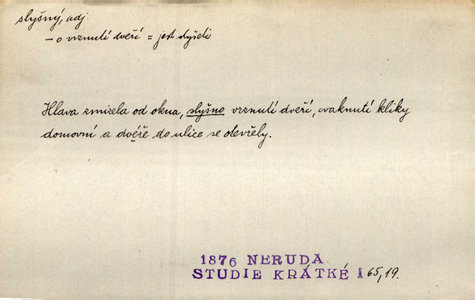 slyšný, adj
- o vrznutí dveří = jest slyšeti
Hlava zmizela od okna, slyšno vrznutí dveří, cvaknutí kliky
domovní a dvéře do ulice se otevřely.
1876 NERUDA
STUDIE KRÁTKÉ I 65,19.